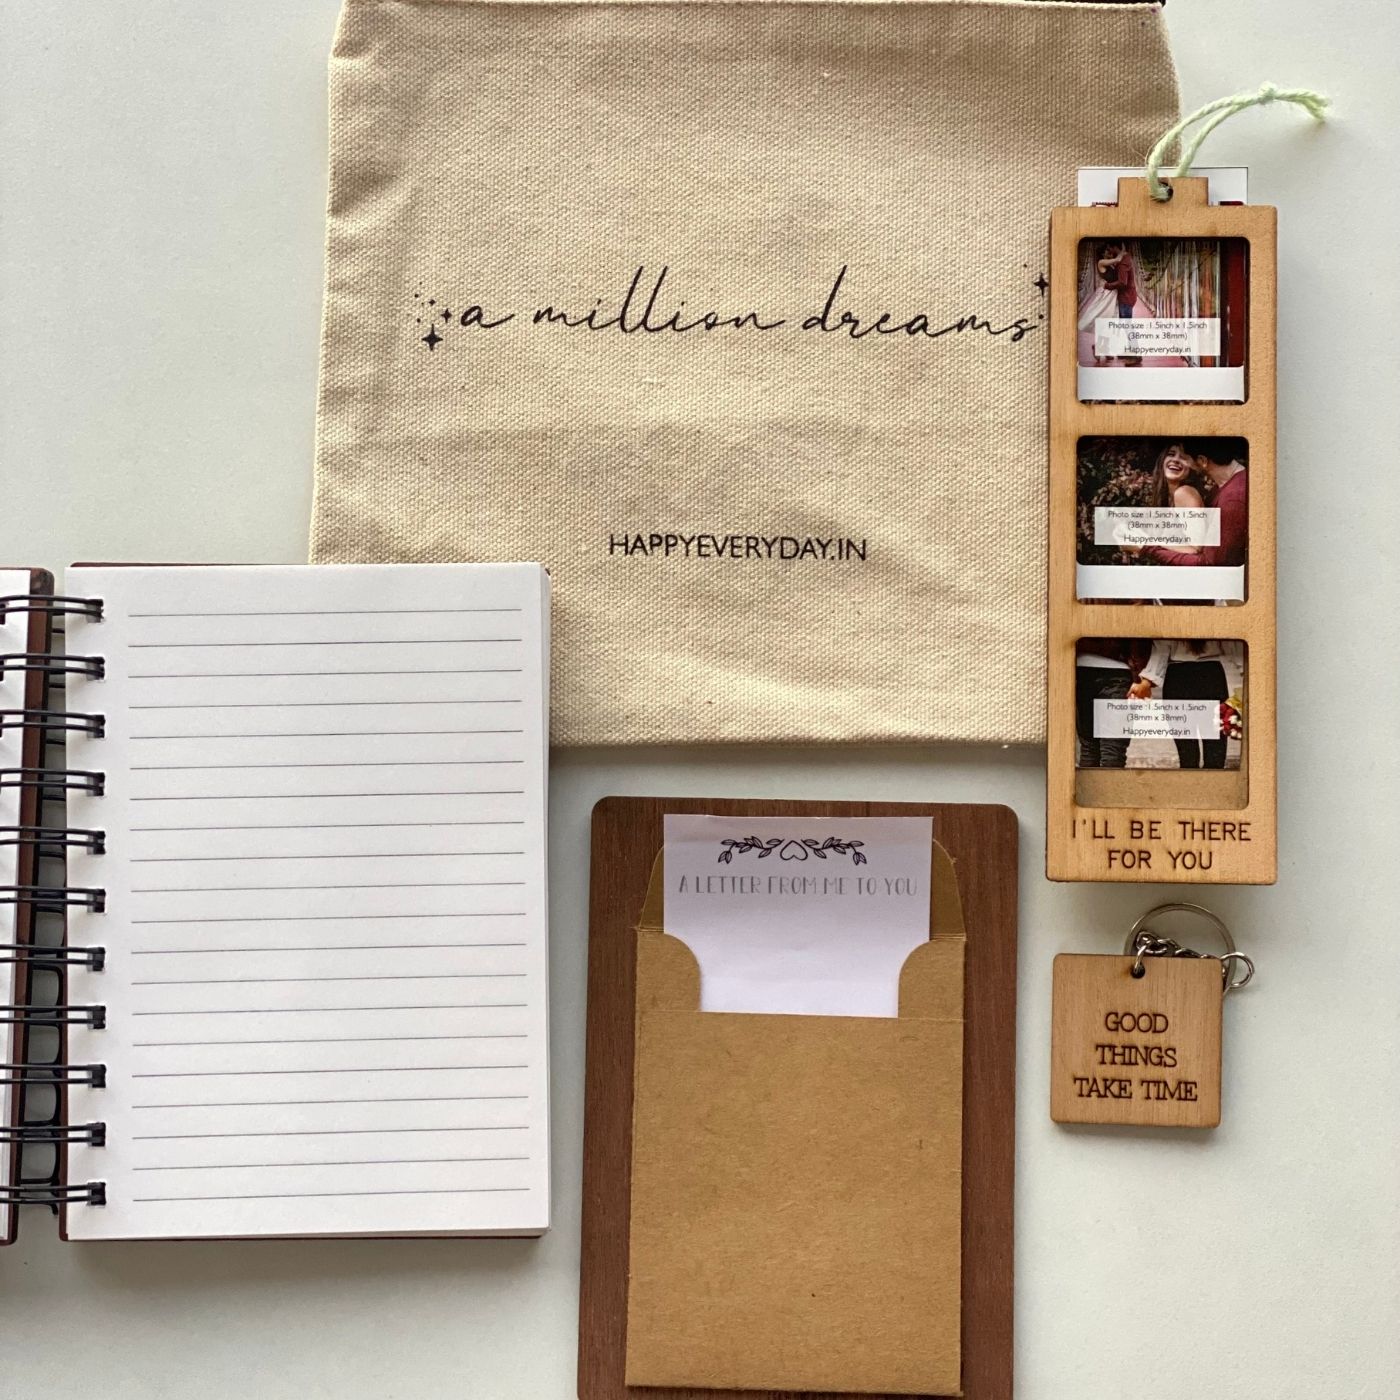 a million dreams
HAPPYEVERYDAY.IN
Photo size : 1.5inch x 1.5inch
(38mm x 38mm)
Happyeveryday.in
Photo size : 1.5inch x 1.5inch
(38mm x 38mm)
Happyeveryday.in
Photo size : 1.5inch x 1.5inch
(38mm x 38mm)
Happyeveryday.in
I'LL BE THERE
FOR YOU
A LETTER FROM ME TO YOU
GOOD
THINGS
TAKE TIME